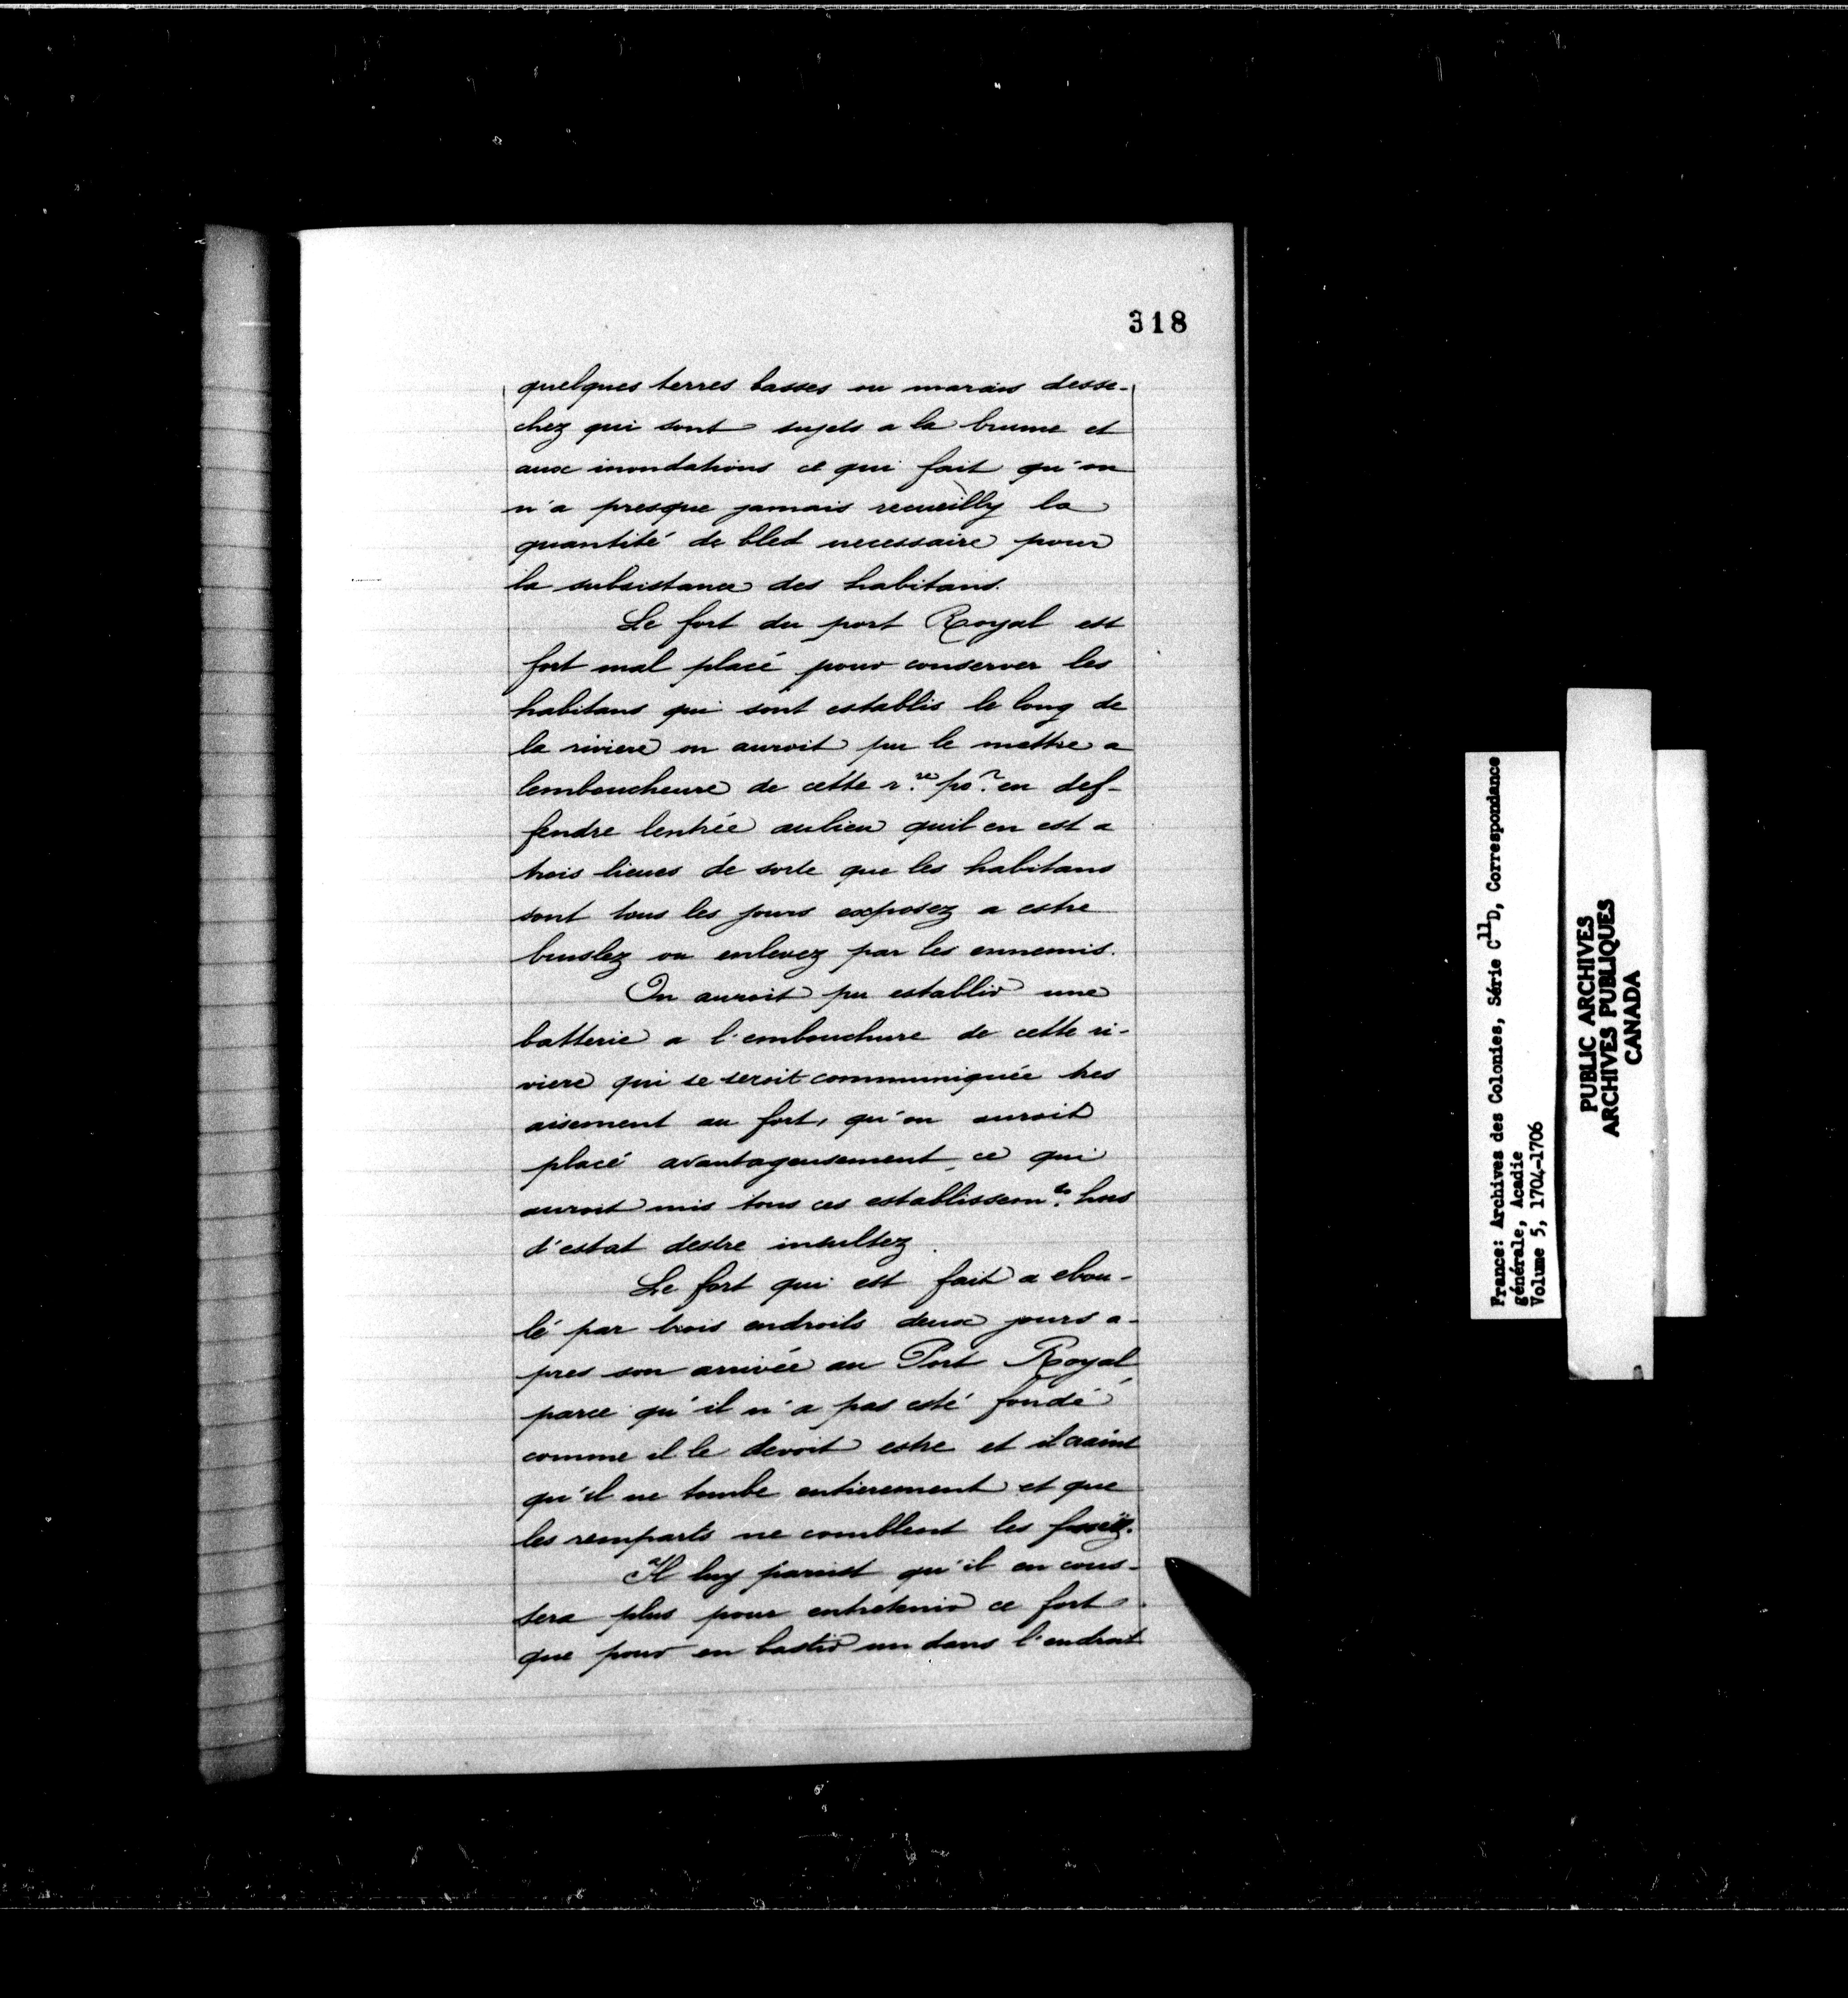 318
quelques terres basses ou marais desse-
chez qui sont sujets a la brume et
aux inondations ce qui fait qu'on
n'a presque jamais recueilly la
quantité de bled necessaire pour
la subsistance des habitans.
Le fort du port Royal est
fort mal placé pour conserver les
habitans qui sont establis le long de
la riviere on auroit pu le mettre a
lemboucheure de cette r.re po.r en def-
fendre lentrée aulieu quil en est a
trois lieues de sorte que les habitans
sont tous les jours exposez a estre
bruslez ou enlevez par les ennemis.
On auroit pu establir une
batterie a l'embouchure de cette ri-
viere qui se seroit communiquée tres
aisement au fort, qu'on auroit
placé avantageusement, ce qui
auroit mis tous ces establissem.ts hors
d'estat destre insultez.
Le fort qui est fait a ebou-
lé par trois endroits deux jours a-
pres son arrivée au Port Royal
parce qu'il n'a pas esté fondé
comme il le devoit estre et il craint
qu'il ne tombe entierement et que
les remparts ne comblent les fossez.
Il luy paroist qu'il en cous-
tera plus pour entretenir ce fort
que pour en bastir un dans l'endroit
France: Archives des Colonies, Série C11D, Correspondance
générale, Acadie
Volume 5, 1704-1706
PUBLIC ARCHIVES
ARCHIVES PUBLIQUES
CANADA